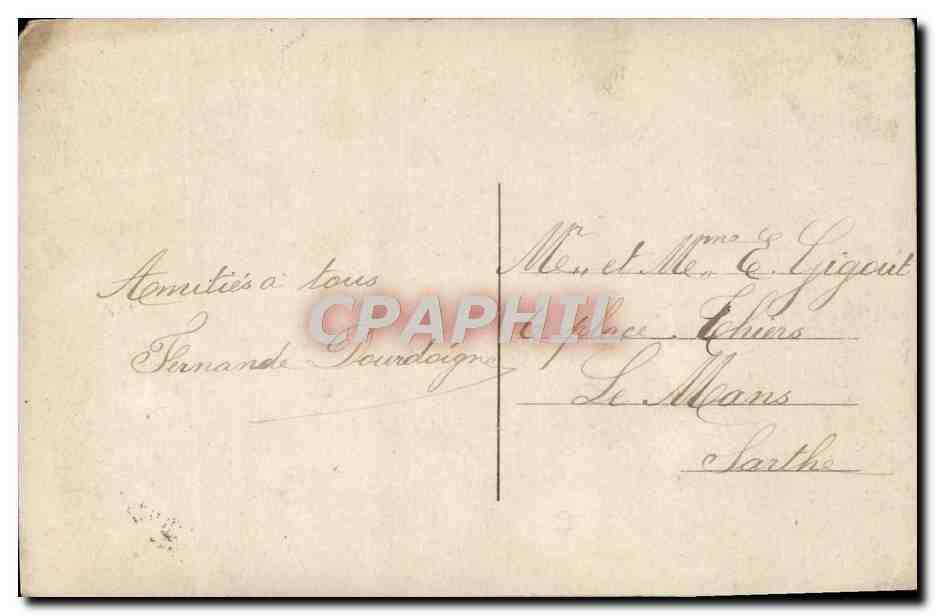 Amitiés à tous
Fernande Dourdoigne
Mr et Mme E. Gigout
place Thiers
Le Mans
Sarthe
CPAPHIL